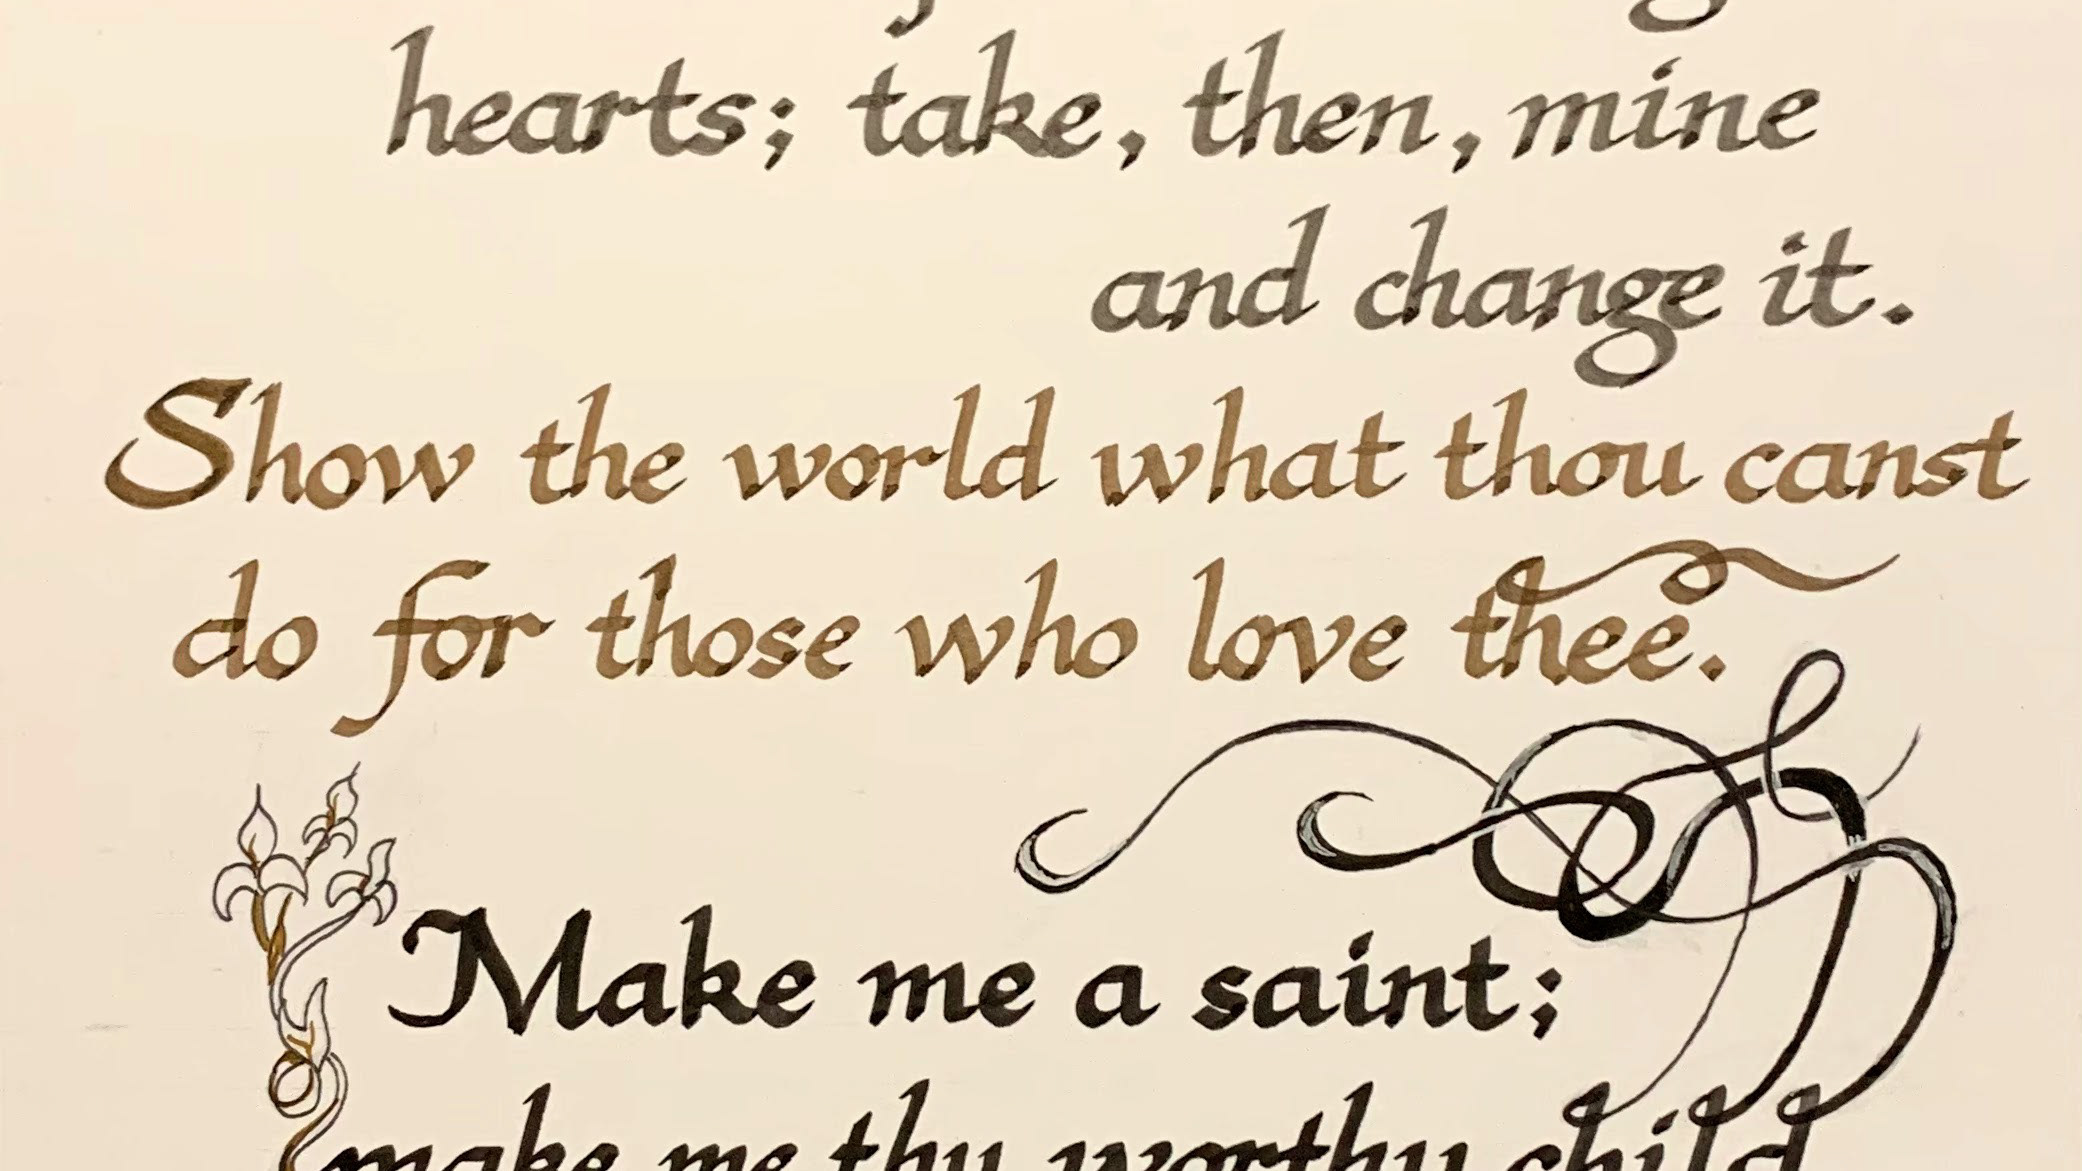 hearts; take, then, mine
and change it.
Show the world what thou canst
do for those who love thee.
Make me a saint;
make me thy worthy child